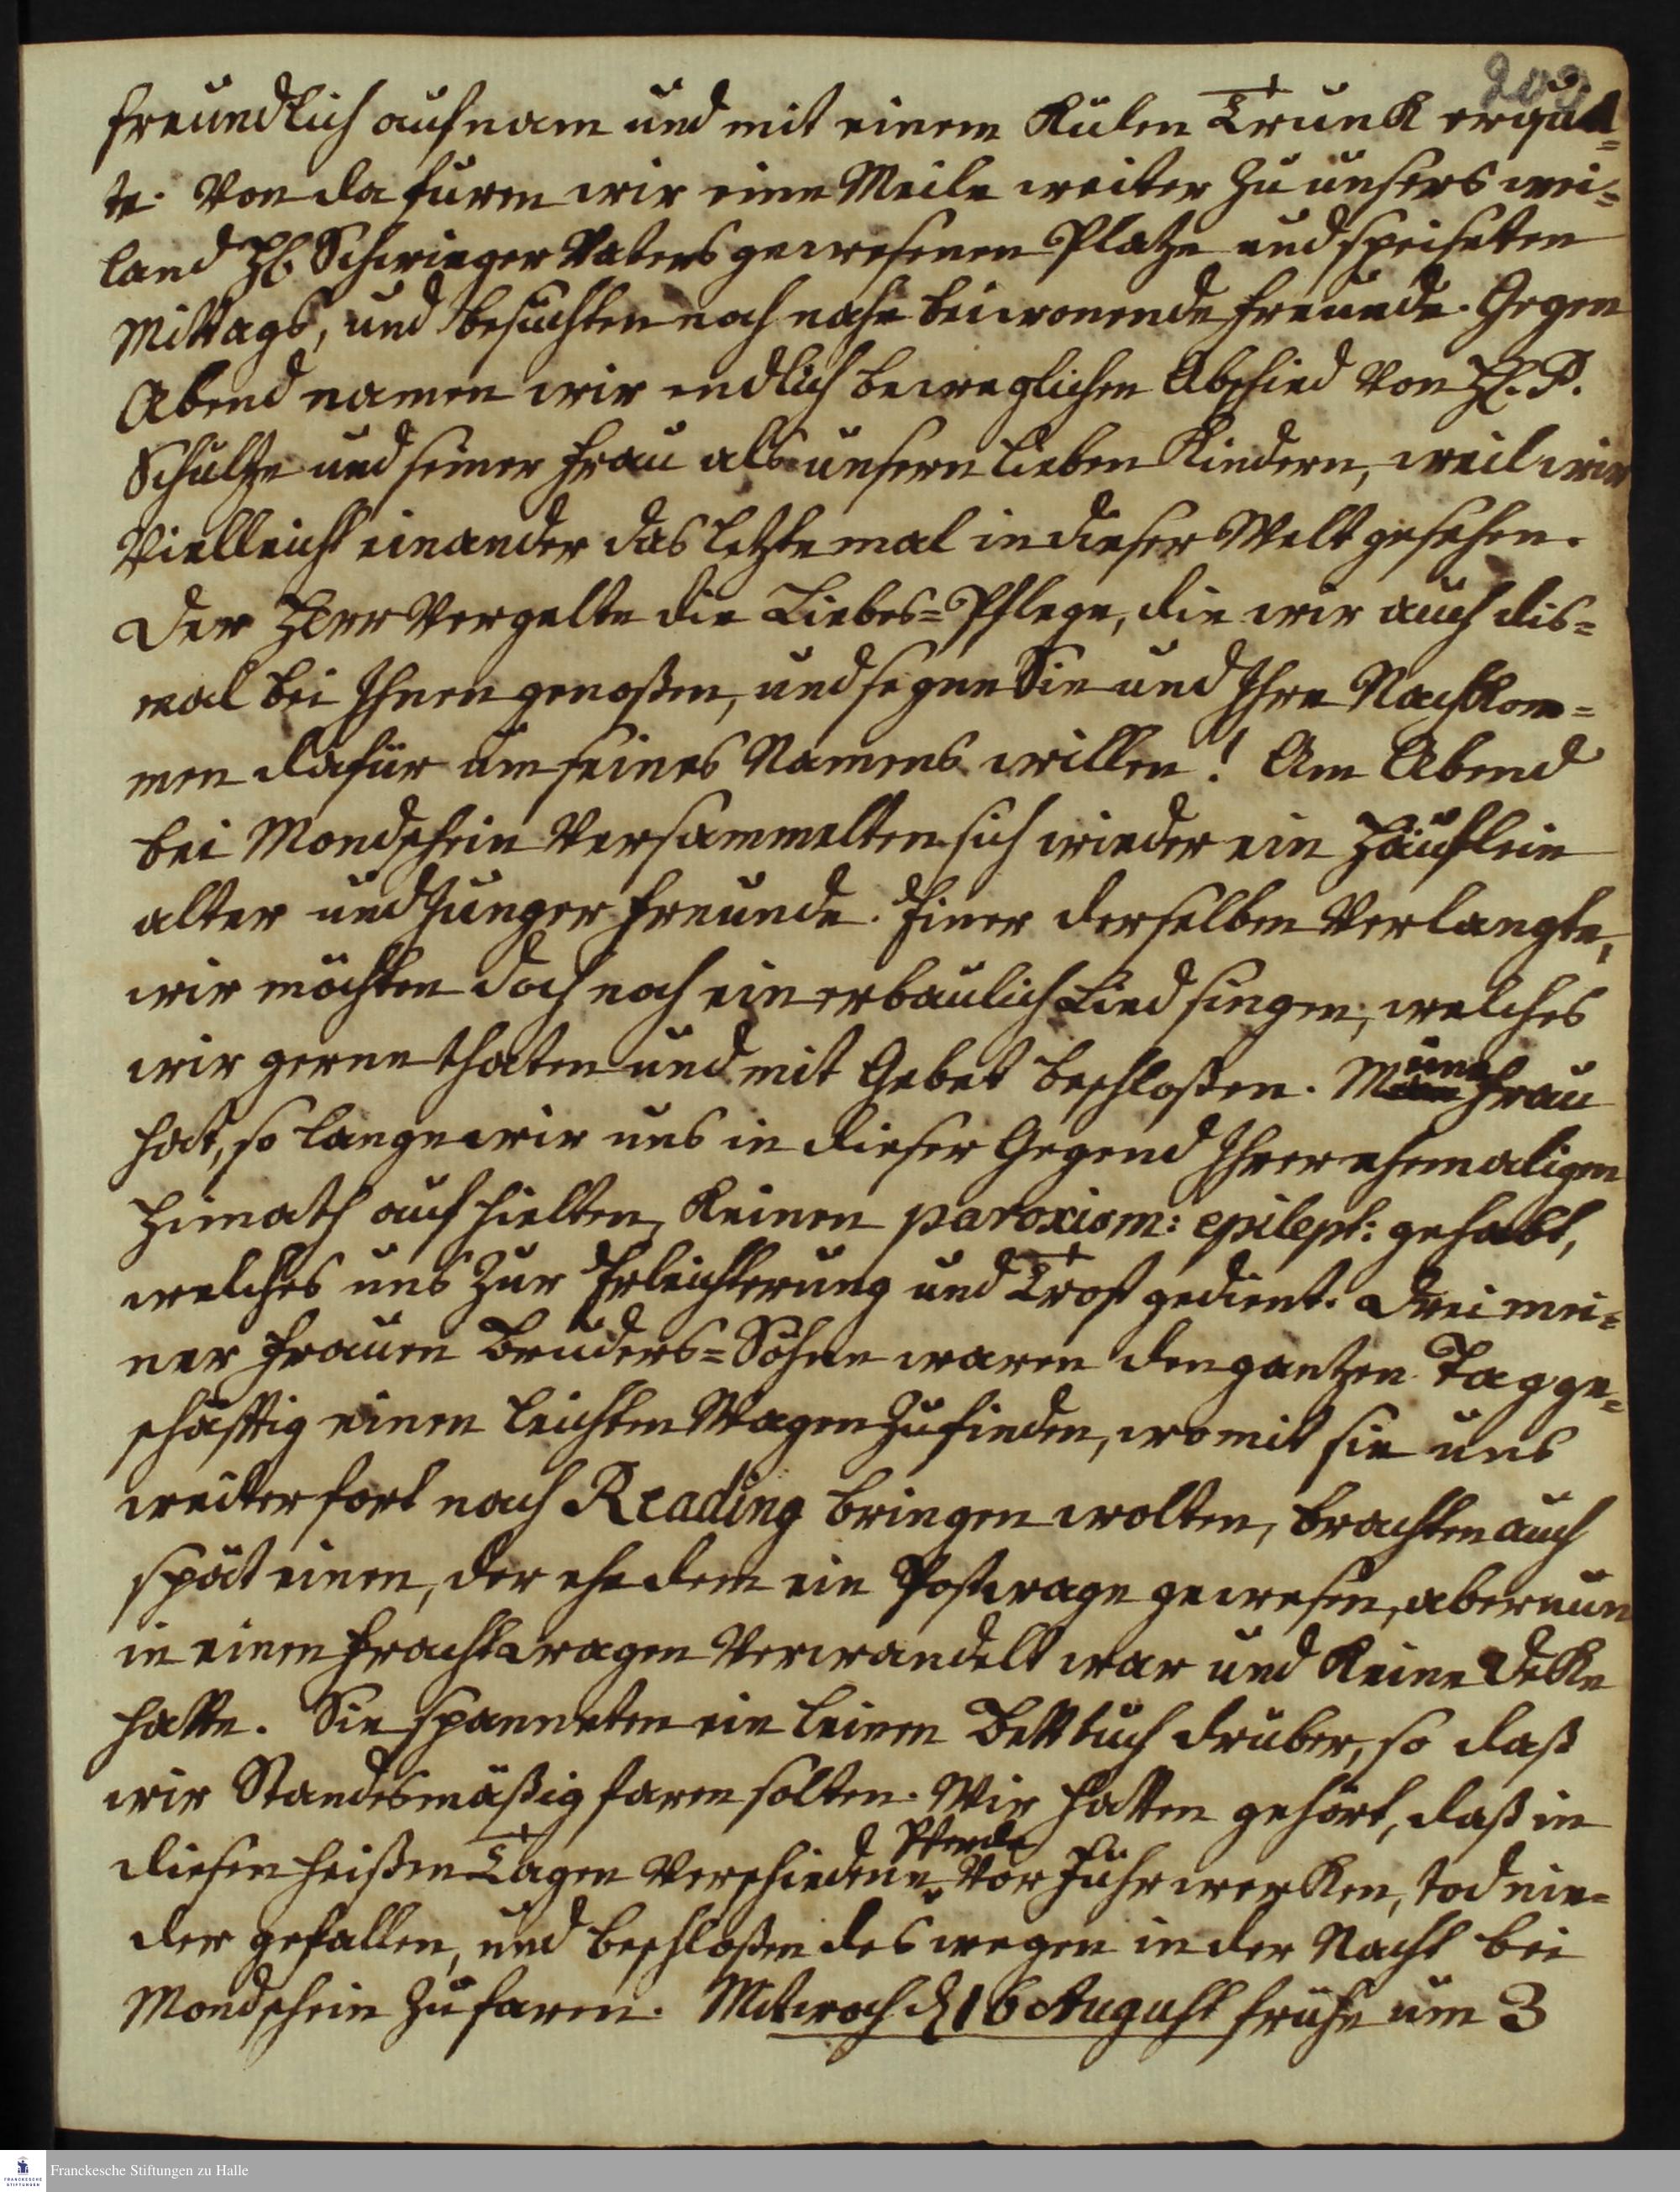 freundlich aufnam und mit einem Külen Trunk erquik=
te. Von da furen wir eine Meile weiter zu unsers wei=
land H. Schwieger Vaters gewesenen Platze und speiseten
Mittags, und besuchten noch nahe beiwonende Freunde. Gegen
Abend namen wir endlich beweglichen Abschied von H. P.
Schultze und seiner Frau als unsern lieben Kindern, weil wir
Vielleicht einander das letzte mal in dieser Welt gesehen.
Der HErr Vergelte die Liebes=Pflege, die wir auch dis=
mal bei Ihnen genoßen, und segne Sie und Ihre Nachkom=
men dafür um seines Namens willen! Am Abend
bei Mondschein Versammelten sich wieder ein Häuflein
alter und Junger Freunde. Einer derselben Verlangte,
wir möchten doch noch ein erbaulich Lied singen, welches
wir gerne thaten und mit Gebet beschloßen. Meine Frau
hat, so lange wir uns in dieser Gegend Ihrer ehemaligen
Heimath aufhielten, Keinen paroxism: epilept: gehabt,
welches uns zur Erleichterung und Trost gedient. Drei mei=
ner Frauen Bruders=Söhne waren den gantzen Tag ge=
schäftig einen leichten Wagen zu finden, womit sie uns
weiter fort nach Reading bringen wolten, brachten auch
spät einen, der ehedem ein Postwage gewesen, aber nun
in einen Frachtwagen Verwandelt war und Keine Deke
hatte. Sie spanneten ein leinen Betttuch drüber, so daß
wir Standesmäßig faren solten. Wir hatten gehört, daß in
diesen heißen Tagen Verschiedene Pferde Vor Fuhrwerken, tod nie=
der gefallen, und beschloßen deswegen in der Nacht bei
Mondschein zu faren. Mitwoch d 16 August frühe um 3
209
Franckesche Stiftungen zu Halle